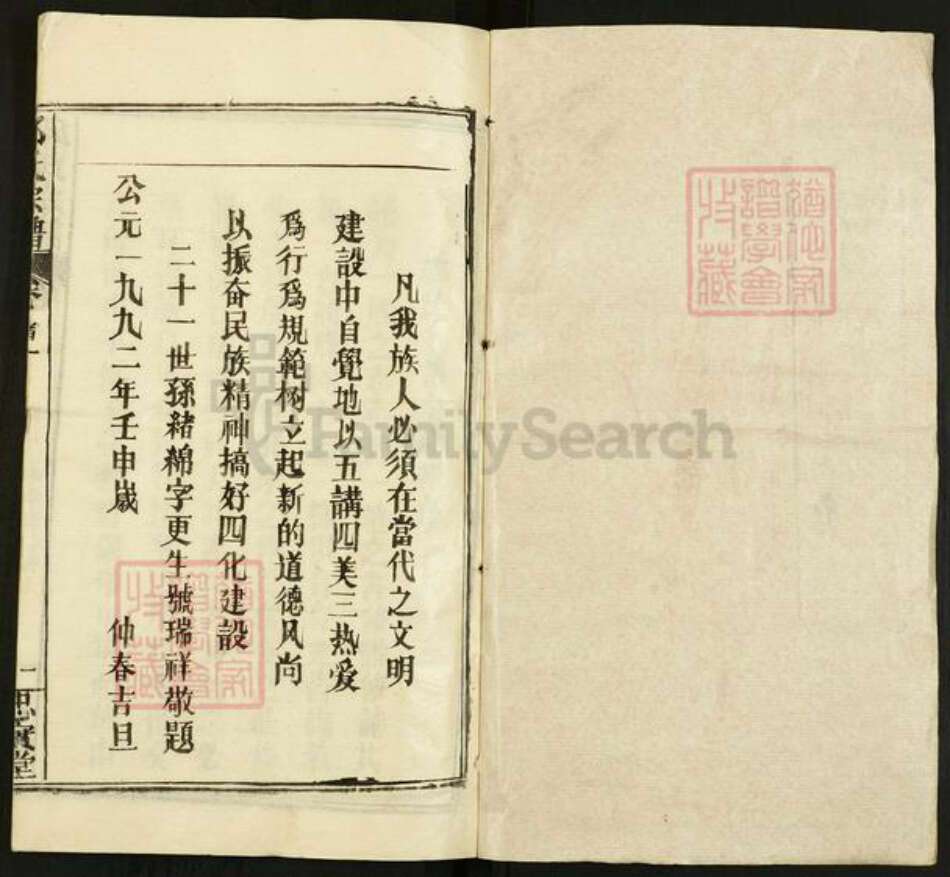 凡我族人必須在當代之文明
建設中自覺地以五講四美三热爱
爲行爲規範树立起新的道德风尚
以振奋民族精神搞好四化建設
二十一世孫緒綿字更生號瑞祥敬題
公元一九九二年壬申嵗 仲春吉旦
氏宗譜
卷首一
一
思賓堂
譜學會
收藏
FamilySearch